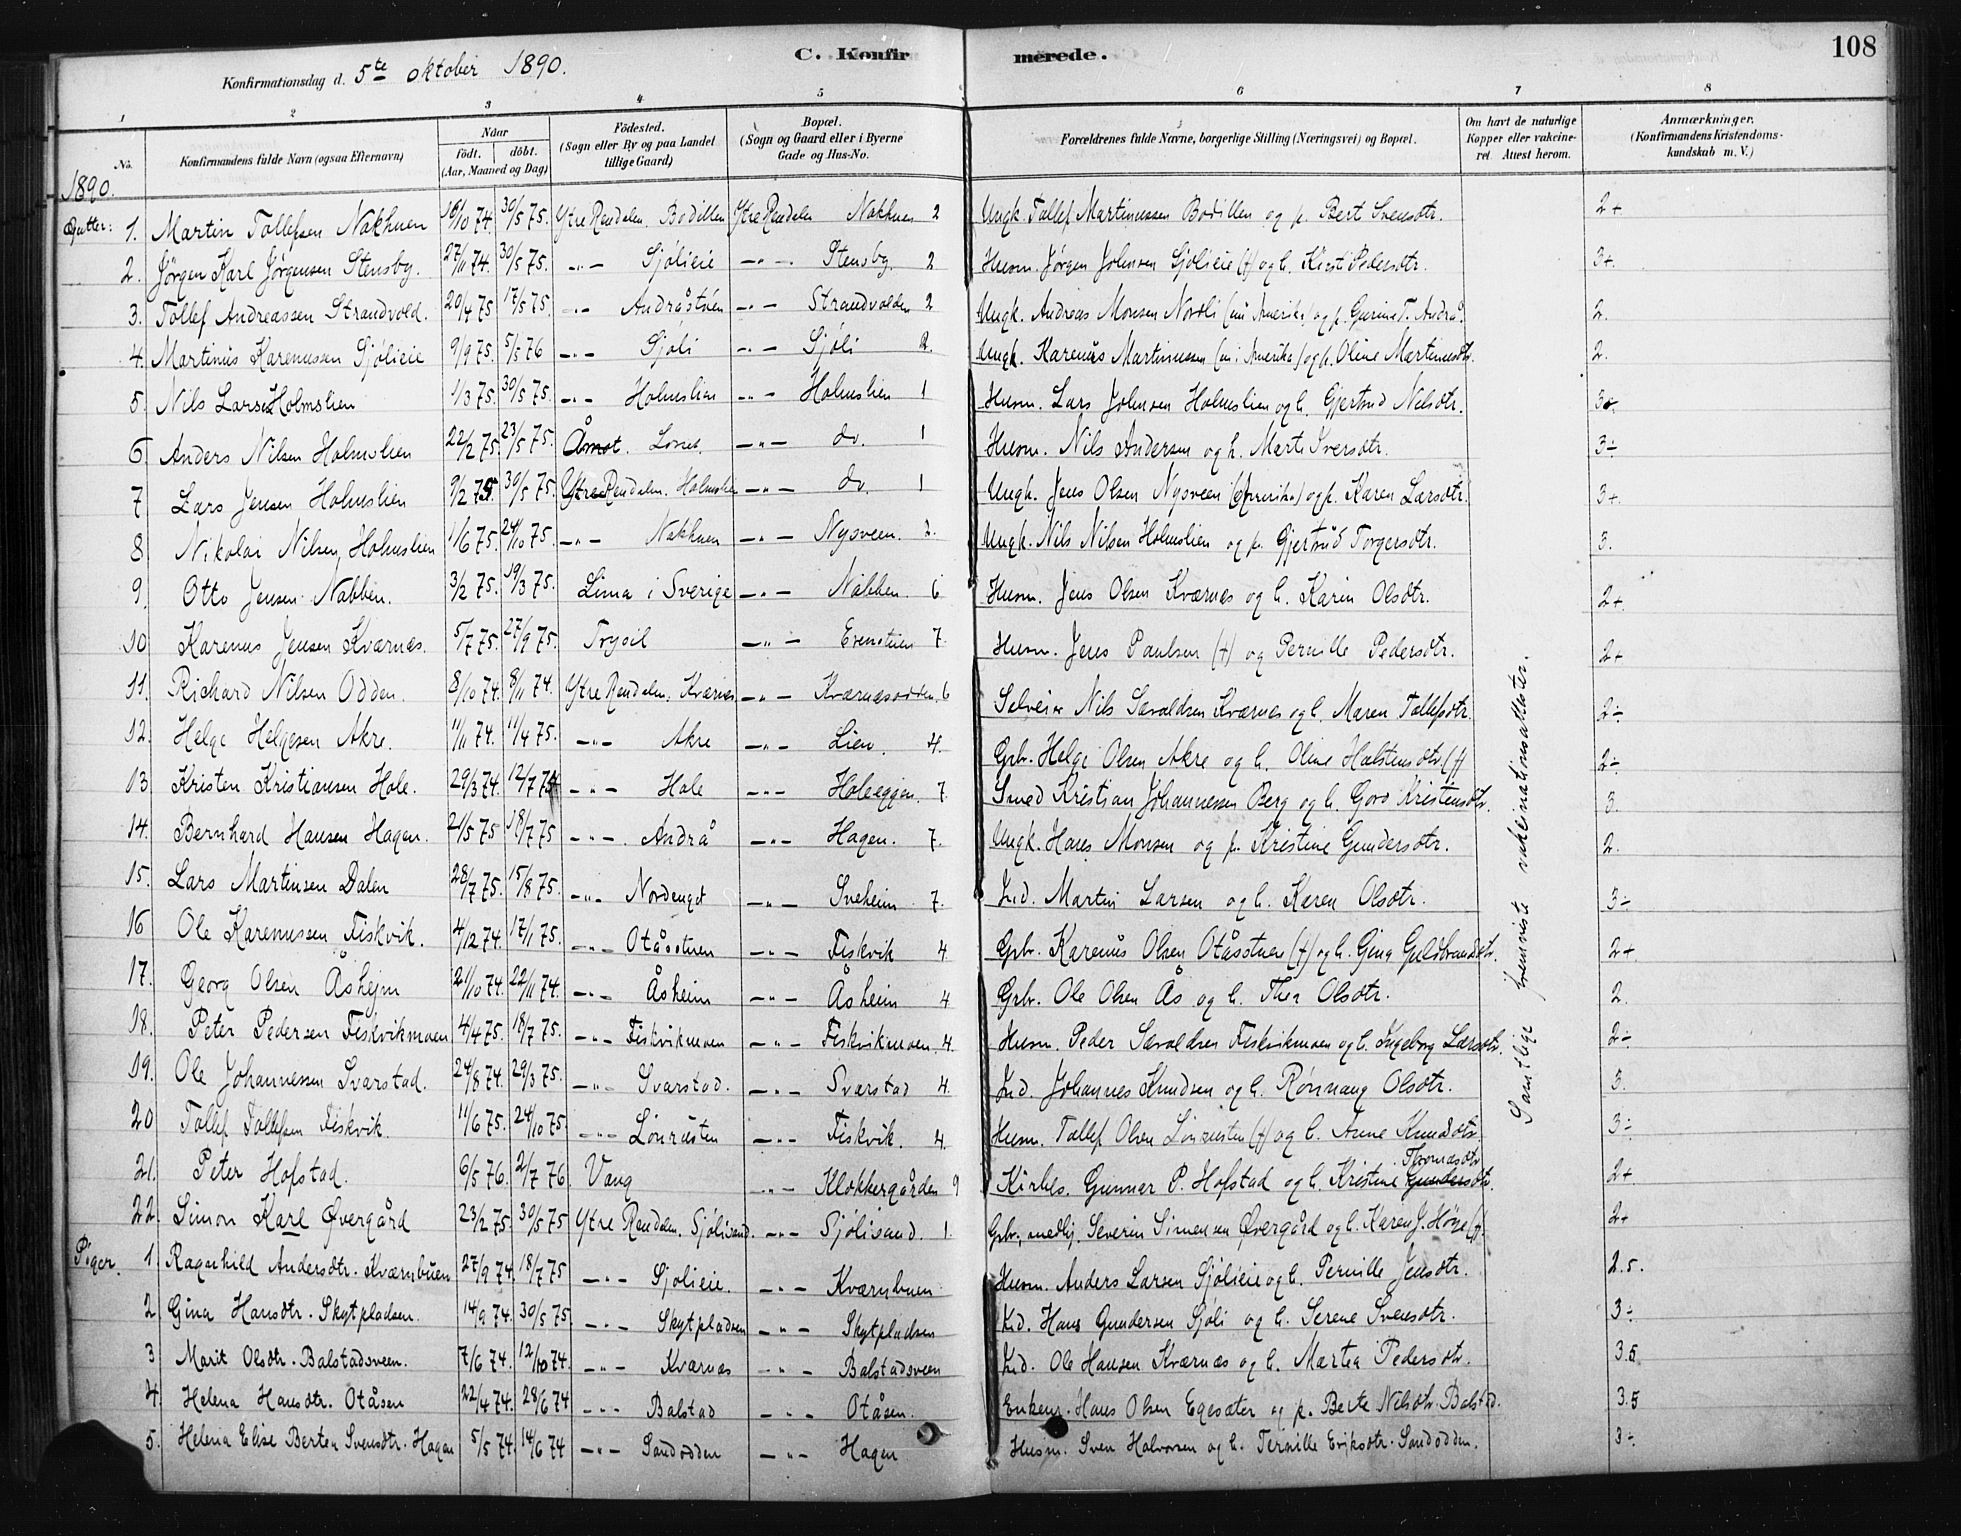 108
C. Konfirmerede.
Konfirmationsdag d. 5te oktober 1890.
1 2 3 4 5 6 7 8
No. Konfirmandens fulde Navn (ogsaa Efternavn) Naar født. døbt. (Aar, Maaned og Dag) Fødested. (Sogn eller By og paa Landet tillige Gaard) Bopæl. (Sogn og Gaard eller i Byerne Gade og Hus-No. Forældrenes fulde Navne, borgerlige Stilling (Næringsvei) og Bopæl. Om havt de naturlige Kopper eller vakcineret. Attest herom. Anmærkninger. (Konfirmandens Kristendomskundskab m. V.)
1890.
Gutter: 1. Martin Tollefsen Nakhuen 16/10 74. 30/5 75. Ytre Rendalen Bodillen Ytre Rendalen Nakhuen 2 Ungk. Tollef Martinussen Bodillen og p. Bert Svensdtr. 2+
2. Jørgen Karl Jørgensen Stensby. 27/11 74. 30/5 75. -"- Sjølieie -"- Stensby. 2 Husm. Jørgen Johnsen Sjølieie (+) og h. Kirsti Pedersdtr. 3+.
3. Tollef Andreassen Strandvold. 20/4 75 17/5 75. -"- Andråstuen -"- Strandvolden 2 Ungk. Andreas Monsen Nordli (nu i Amerika) og p. Gurine T. Andrå. 2.
4. Martinus Karenussen Sjølieie 9/9 75. 5/5 76 -"- Sjøli -"- Sjøli 2. Ungk. Karenus Martinussen (nu i Amerika) og p. Oline Martinusdtr. 2.
5. Nils Larsen Holmslien 1/3 75. 30/5 75. -"- Holmslien -"- Holmslien 1 Husm. Lars Johnsen Holmslien og h. Gjertrud Nilsdtr.
6 Anders Nilsen Holmslien 22/2 75. 23/5 75. Åmot. -"- do. 1 Husm. Nils Andersen og h. Marte Iversdtr. 3÷
7 Lars Jensen Holmslien 9/2 75. 30/5 75. Ytre Rendalen. Holmslien -"- do. 1 Ungk. Jens Olsen Nysveen (i Amerika) og p. Karen Larsdtr. 3+.
8 Nikolai Nilsen Holmslien 1/6 75. 24/10 75. -"- Nakhuen -"- Nysveen. 2. Ungk. Nils Nilsen Holmslien og p. Gjertrud Torgersdtr. 3.
9. Otto Jensen Nabben. 3/2 75. 19/3 75. Lima i Sverige -"- Nabben. 6 Husm. Jens Olsen Kværnes og h. Karin Olsdtr. 2+.
10 Karenus Jensen Kværnes. 5/7 75. 27/9 75. Trysil -"- Evenstuen 7. Husm. Jens Paulsen (+) og Pernille Pedersdtr. 2+
11. Richard Nilsen Odden. 8/10 74. 8/11 74. Ytre Rendalen. Kværnes -"- Kværnesodden. 6 Selveier Nils Sævaldsen Kværnes og h. Maren Tollefsdtr. 2÷.
12. Helge Helgesen Akre. 11/11 74. 11/4 75. -"- Akre -"- Lien. 4. Gbr. Helge Olsen Akre og h. Oline Halstensdtr (+) 2÷
13 Kristen Kristiansen Hole. 29/3 74. 12/7 74 -"- Hole -"- Holeeggen. 7. Smed Kristian Johannessen Berg og h. Goro Kristensdtr. 3.
14. Bernhard Hansen Hagen. 21/5 75 18/7 75 -"- Andrå -"- Hagen. 7. Ungk. Hans Monsen og p. Kristine Gundersdtr. 2.
15. Lars Martinsen Dalen 28/7 75. 15/8 75. -"- Nordenget -"- Sveheim 7. Ind. Martin Larsen og h. Karen Olsdtr. 3÷
16 Ole Karenussen Fiskvik. 4/12 74. 17/1 75. -"- Otåsstuen -"- Fiskvik 4. Gbr. Karenus Olsen Otåsstuen (+) og h. Gina Guldbrandsdtr. 2+.
17. Georg Olsen Åsheim 21/10 74. 22/11 74. -"- Åsheim -"- Åsheim 4 Gbr. Ole Olsen Ås og h. Thea Olsdtr. 2.
18. Peter Pedersen Fiskvikmoen 4/4 75. 18/7 75. -"- Fiskvikmoen -"- Fiskvikmoen. 4. Husm. Peder Sævaldsen Fiskvikmoen og h. Ingeborg Larsdtr. 2÷
19. Ole Johannessen Svarstad. 24/8 74. 29/3 75. -"- Svarstad. -"- Svarstad 4. Ind. Johannes Knudsen og h. Rønnaug Olsdtr. 3.
20 Tollef Tollefsen Fiskvik. 11/6 75. 24/10 75. -"- Lonrusten -"- Fiskvik. 4. Husm. Tollef Olsen Lonrusten (+) og h. Anne Knudsdtr. 3÷
21. Peter Hofstad. 6/5 76. 2/7 76 Vang -"- Klokkergården 9 Kirkes. Gunnar P. Hofstad og h. Kristine Thomasdtr. 2+
22. Simon Karl Øvergård 23/2 75. 30/5 75 Ytre Rendalen. Sjølisand. -"- Sjølisand. 1. Gbr., Severin Simensen Øvergård og h. Karen J. (+). 2+
Piger. 1 Ragnhild Andersdtr. Kværnbuen 27/9 74. 18/7 75 -"- Sjølieie. -"- Kværnbuen Husm. Anders Larsen Sjølieie og h. Pernille Jensdtr. 2.5.
2 Gina Hansdtr. Skytpladsen. 14/9 74. 30/5 75. -"- Skytpladsen -"- Skytpladsen Ind. Hans Gundersen Sjøli og h. Serene Svensdtr. 3÷
3 Marit Olsdtr. Balstadsveen. 7/6 74. 12/10 74. -"- Kværnes -"- Balstadsveen Ind. Ole Hansen Kværnes og h. Martea Pedersdtr. 3.5
4. Helena Hansdtr. Otåsen 22/4 74. 28/6 74 -"- Balstad -"- Otåsen. Enkem. Hans Olsen Egesæter og p. Berte Nilsdtr. Balstad. 3.5
5. Helena Elise Bertea Svensdtr. Hagen 5/5 74. 14/6 74 -"- Sandodden -"- Hagen Husm. Sven Halvorsen og h. Pernille Eriksdtr. Sandodden. 3÷
Samtlige fremviste vakcinationsattester.